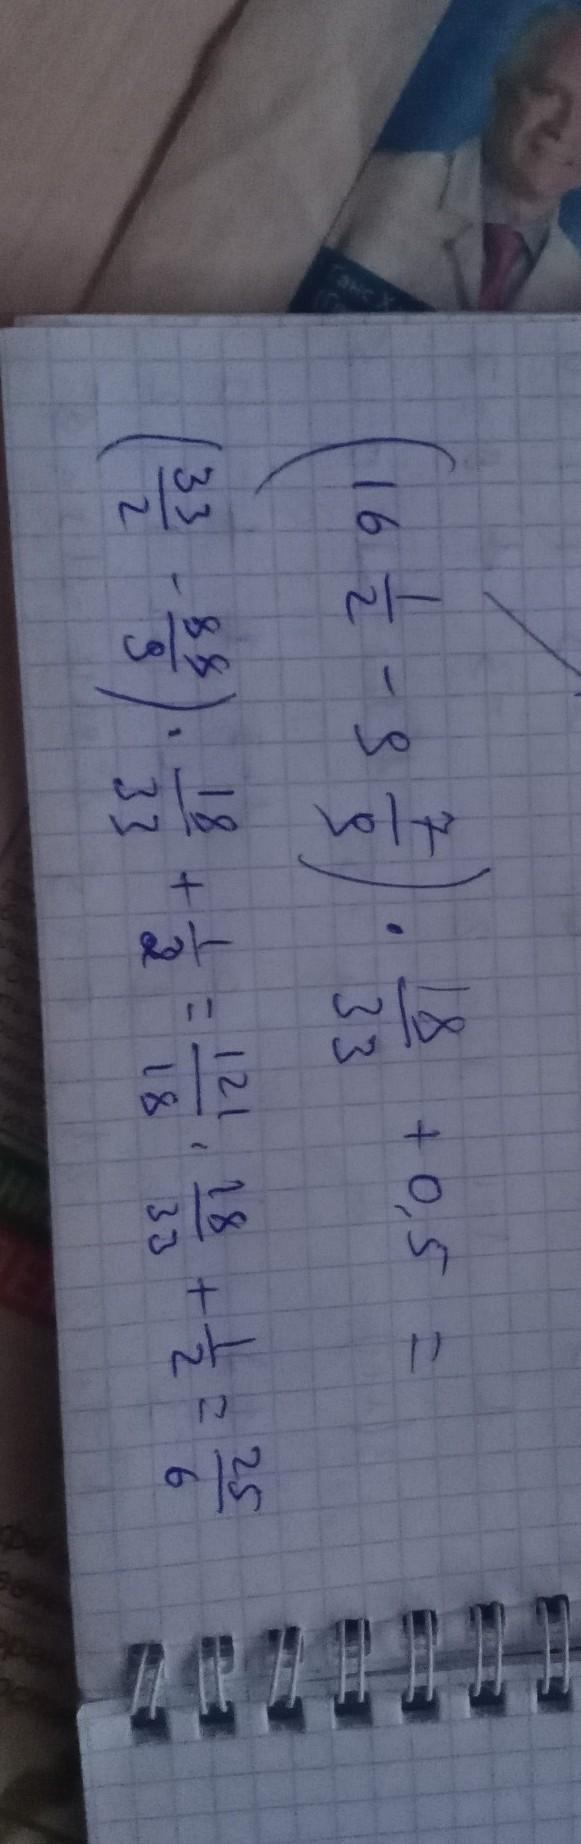 (16 1/2 - 9 7/9) · 18/33 + 0,5 =
(33/2 - 88/9) · 18/33 + 1/2 = 121/18 · 18/33 + 1/2 = 25/6
Ганс Х